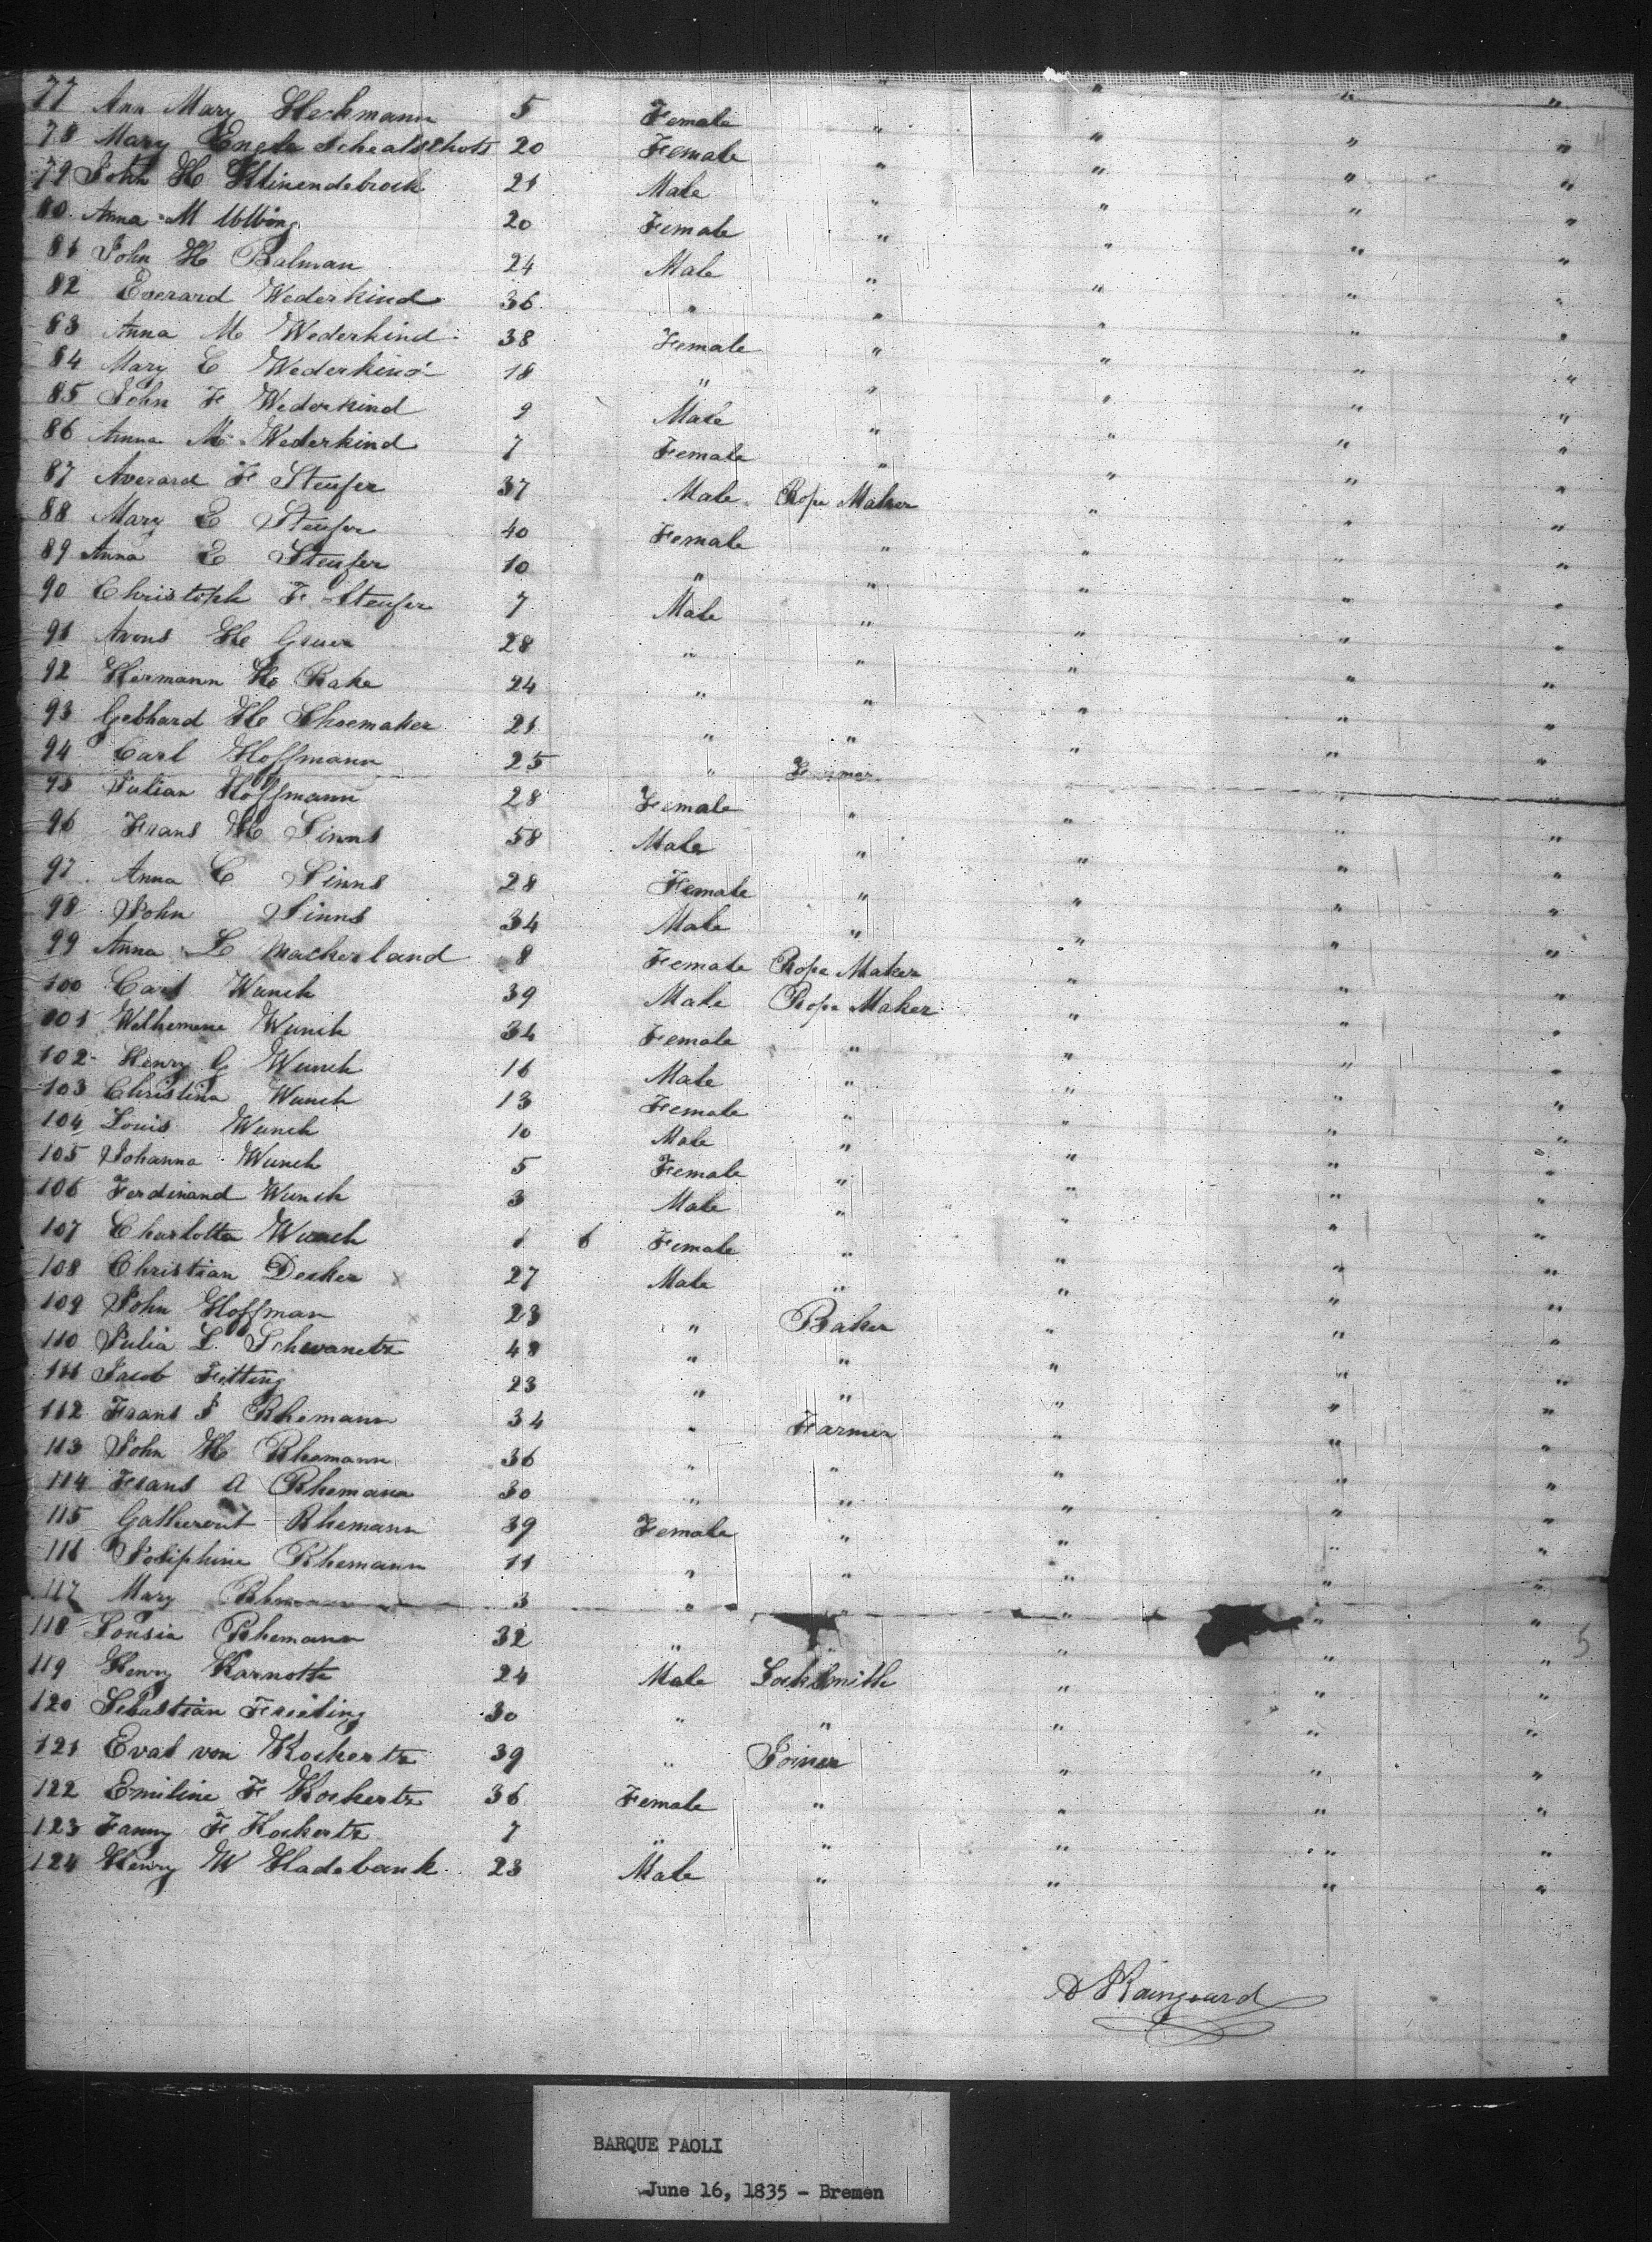 77 Ann Mary Heckmann 5 Female " " " "
78 Mary Engle 20 Female " " " "
79 John H Klinendebrock 21 Male " " " "
80 Anna M 20 Female " " " "
81 John H Balman 24 Male " " " "
82 Everard Wederkind 36 " " " " "
83 Anna M Wederkind 38 Female " " " "
84 Mary E Wederkind 18 " " " " "
85 John F Wederkind 9 Male " " " "
86 Anna M Wederkind 7 Female " " " "
87 Averard F Steufer 37 Male Rope Maker " " "
88 Mary E Steufer 40 Female " " " "
89 Anna E Steufer 10 " " " " "
90 Christoph F Steufer 7 Male " " " "
91 H 28 " " " " "
92 Hermann H Rake 24 " " " " "
93 Gebhard H Shoemaker 21 " " " " "
94 Carl Hoffmann 25 " Farmer " " "
95 Julian Hoffmann 28 Female " " " "
96 Frans H Sinns 58 Male " " " "
97 Anna C Sinns 28 Female " " " "
98 John Sinns 34 Male " " " "
99 Anna L Mackerland 8 Female Rope Maker " " "
100 Carl Wunch 39 Male Rope Maker " " "
101 Welhemene Wunch 34 Female " " " "
102 Henry G Wunch 16 Male " " " "
103 Christina Wunch 13 Female " " " "
104 Louis Wunch 10 Male " " " "
105 Johanna Wunch 5 Female " " " "
106 Ferdinand Wunch 3 Male " " " "
107 Charlotta Wunch 1 6 Female " " " "
108 Christian Decker x 27 Male " " " "
109 John Hoffman x 23 " Baker " " "
110 Julia L. Schwanetz 48 " " " " "
111 Jacob Fitting 23 " " " " "
112 Frans J Rhemann 34 " Farmer " " "
113 John H Rhemann 36 " " " " "
114 Frans A Rhemann 30 " " " " "
115 Rhemann 39 Female " " " "
116 Josiphine Rhemann 11 " " " " "
117 Mary Rhemann 3 " " " " "
118 Lousia Rhemann 32 " " " " "
119 Henry Karnotte 24 Male Locksmith " " "
120 Sebastian Freiling 30 " " " " "
121 Eval von Kockertz 39 " Joiner " " "
122 Emiline F Kockertz 36 Female " " " "
123 Fanny F Kockertz 7 " " " " "
124 Henry W Hadebank 23 Male " " " "
BARQUE PAOLI
June 16, 1835 - Bremen